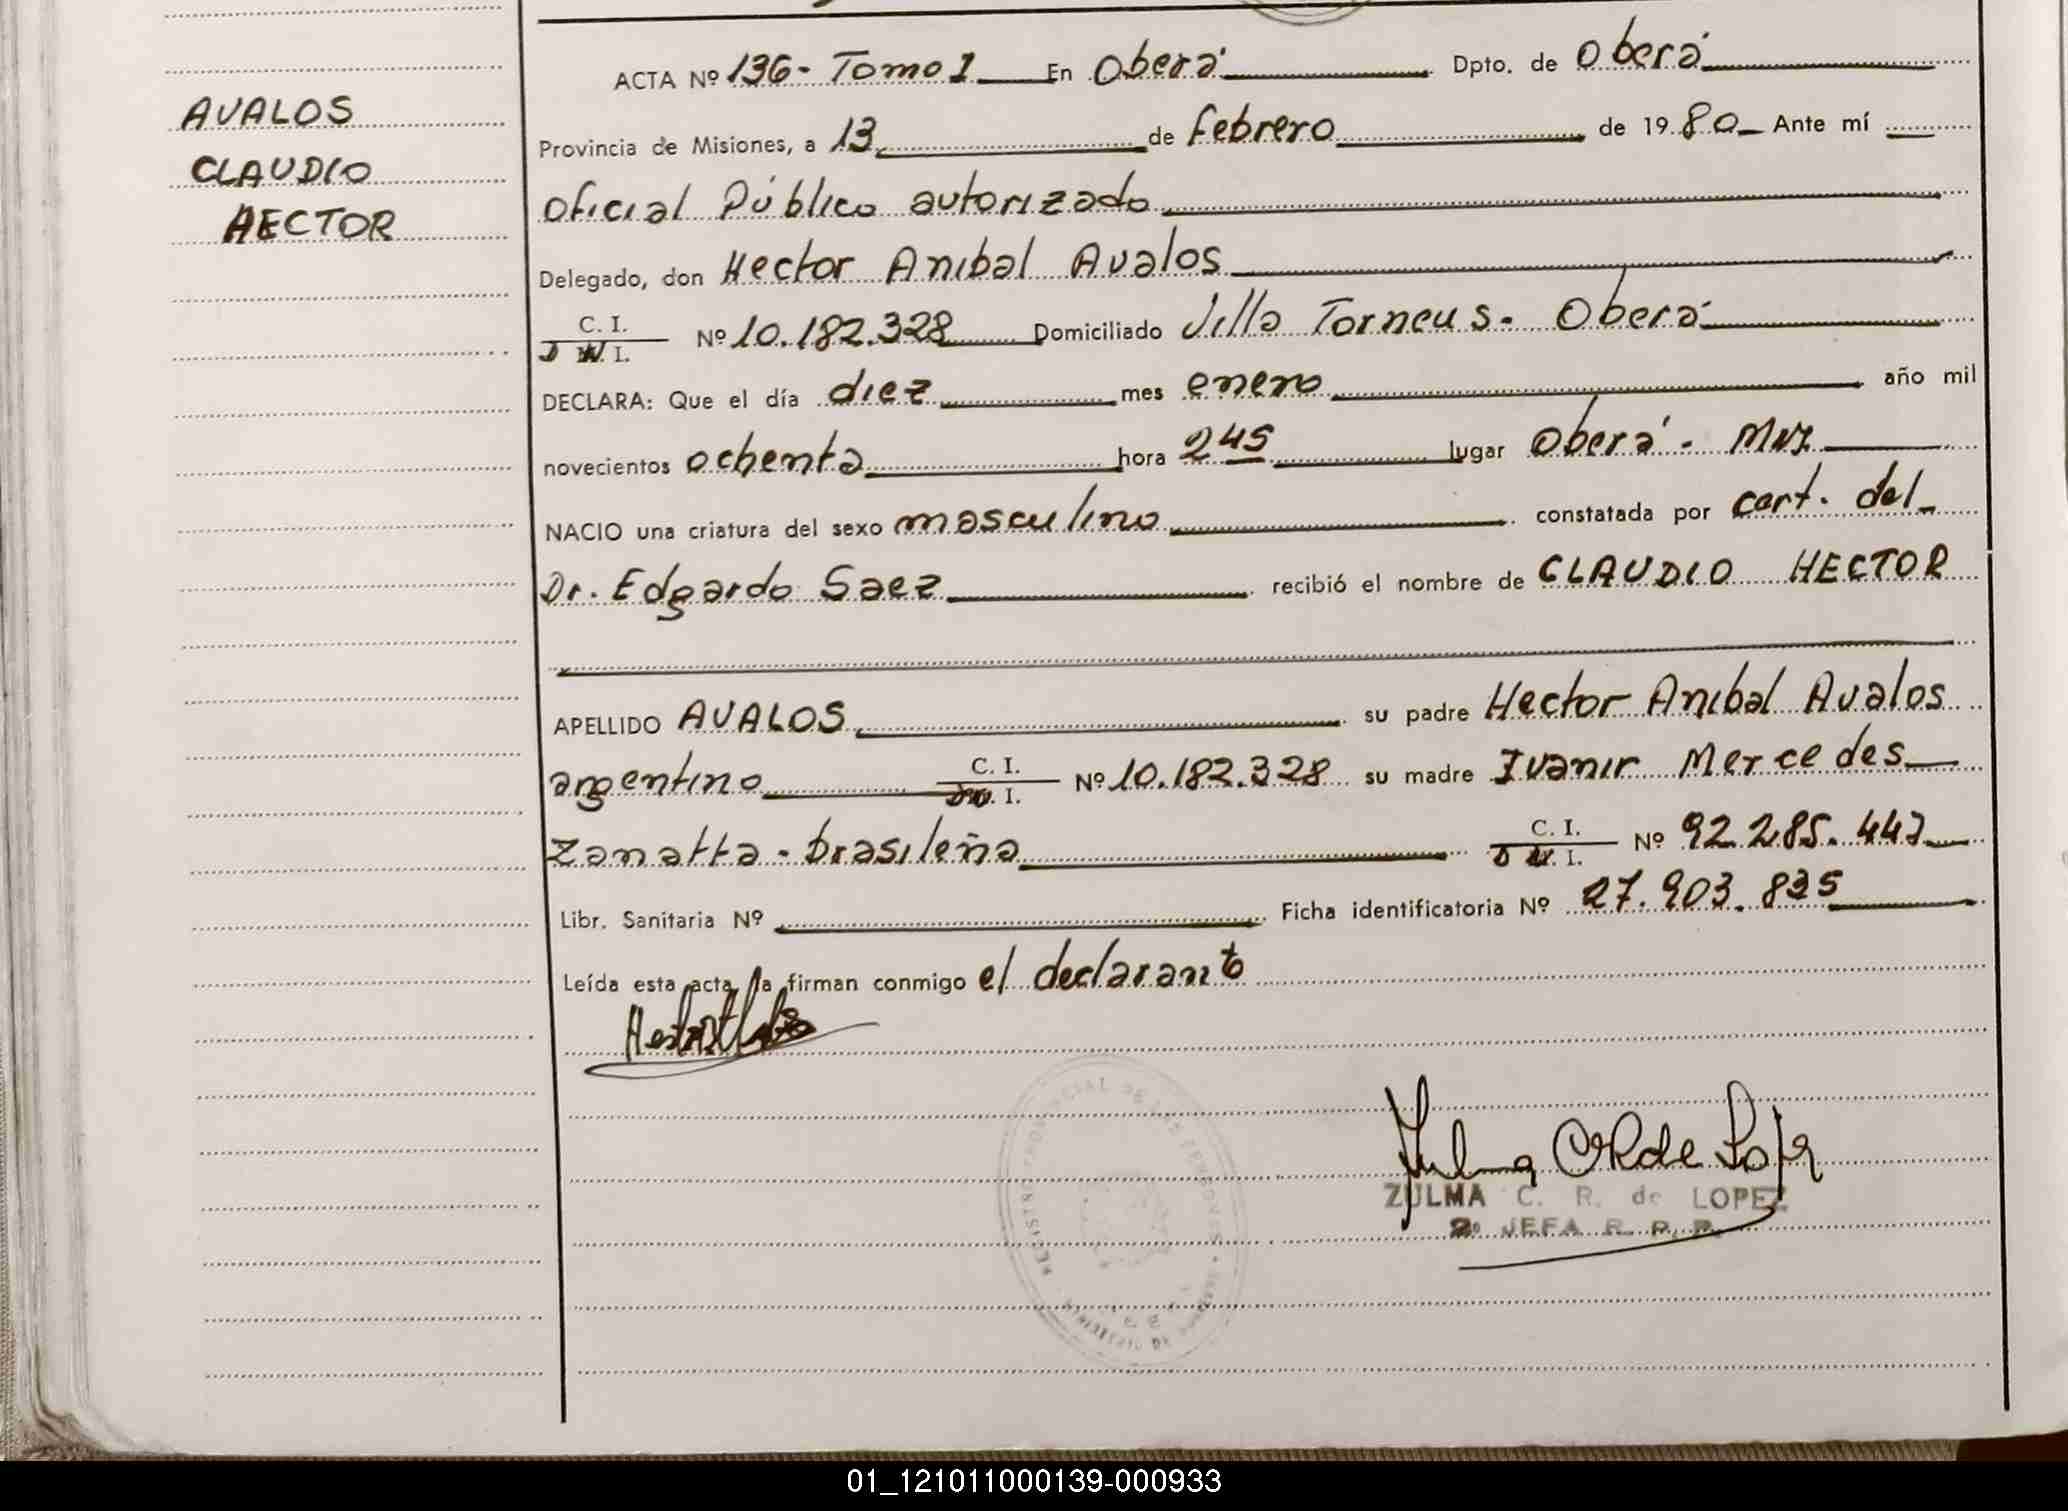 AVALOS
CLAUDIO
HECTOR
ACTA Nº 136- Tomo 1 En Oberá Dpto. de Oberá
Provincia de Misiones, a 13 de febrero de 1980 Ante mí
Oficial Público autorizado
Delegado, don Hector Anibal Avalos
C. I.
D N. I. Nº 10.182.328 Domiciliado Villa Torneus- Oberá
DECLARA: Que el día diez mes enero año mil
novecientos ochenta hora 2 45 lugar Oberá-
NACIO una criatura del sexo masculino constatada por cert. del
Dr. Edgardo Saez recibió el nombre de CLAUDIO HECTOR
APELLIDO AVALOS su padre Hector Anibal Avalos
argentino C. I. Nº 10.182.328 su madre Ivanir Mercedes
Zanatta- brasileña C. I.
D N. I. Nº 92.285.447
Libr. Sanitaria Nº Ficha identificatoria Nº 27.903.835
Leída esta acta la firman conmigo el declarante
ZULMA C. R. de LOPEZ
2º JEFA R. P. P.
01_121011000139-000933